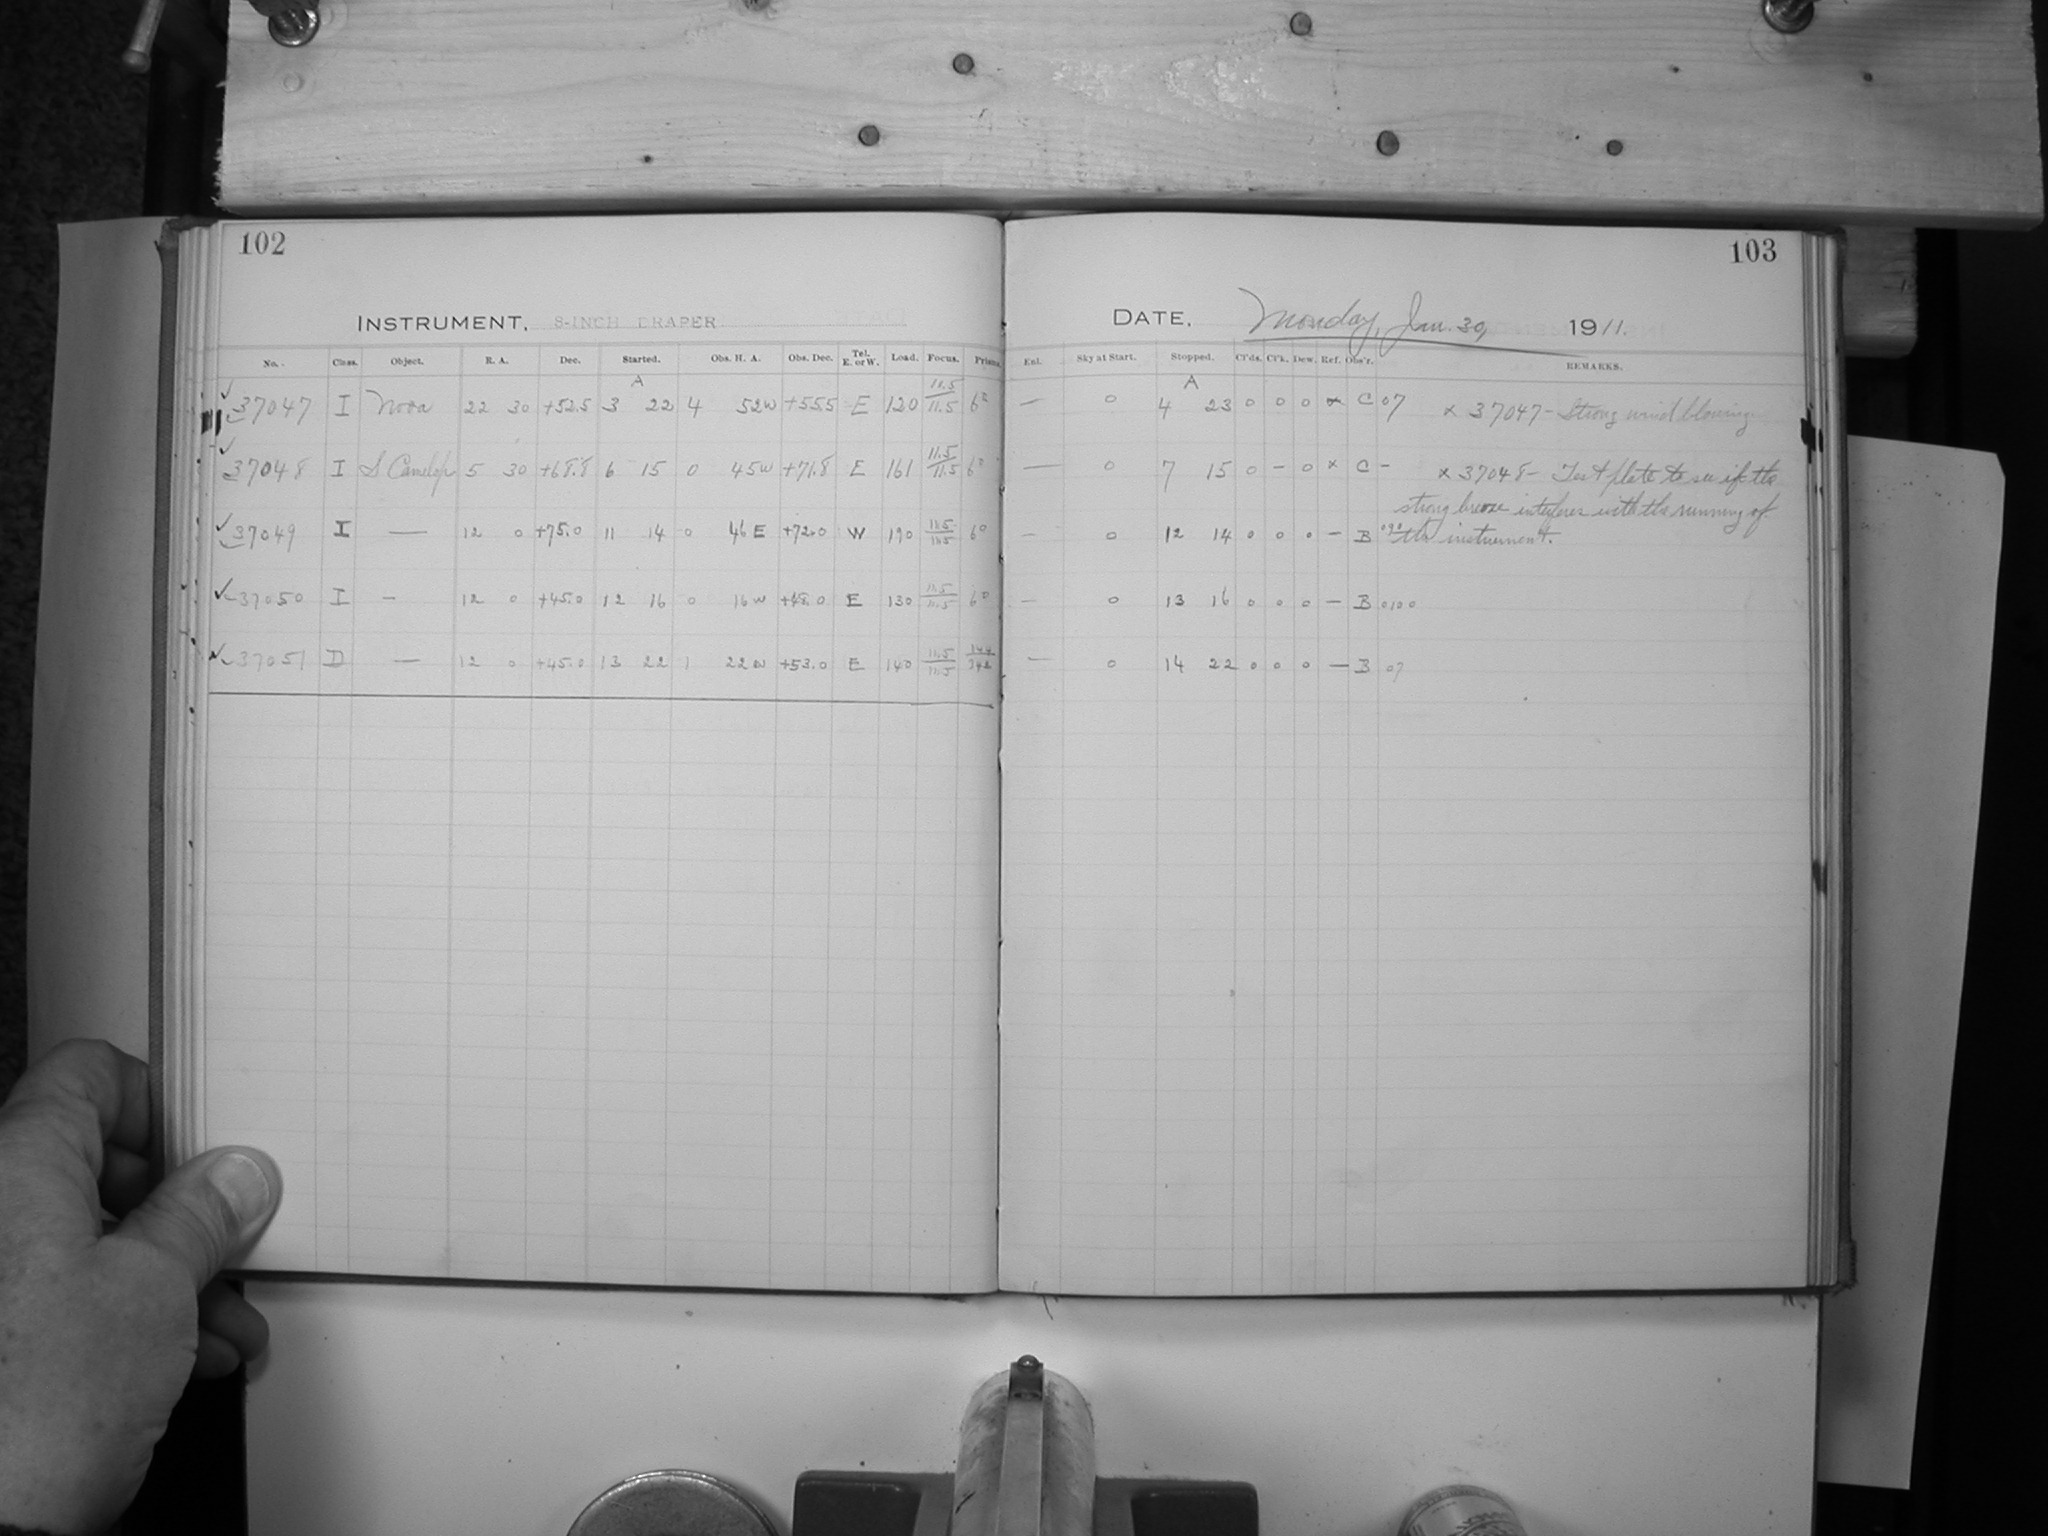 102
INSTRUMENT, 8-INCH DRAPER
No. Class. Object. R. A. Dec. Started. Obs. H. A. Obs. Dec. Tel. E. or W. Load. Focus. Prism.
A
37047 I Nova 22 30 +52.5 3 22 4 52w +55.5 E 120 11.5/11.5
37048 I S Camelop 5 30 +68.8 6 15 0 45w +71.8 E 161 11.5/11.5
37049 I — 12 0 +75.0 11 14 0 46 E +72.0 W 190 11.5/11.5
37050 I — 12 0 +45.0 12 16 0 16w +48.0 E 130 11.5/11.5
37051 D — 12 0 +45.0 13 22 1 22w +53.0 E 140 11.5/11.5
103
DATE, Monday, Jan. 30, 1911.
Enl. Sky at Start. Stopped. Cl'ds. Cl'k. Dew. Ref. Obs'r. REMARKS.
A
— 0 4 23 0 0 0 x C 07 x 37047 - Strong wind blowing
— 0 7 15 0 - 0 x C - x 37048 - Test plate to see if the
strong breeze interferes with the running of
— 0 12 14 0 0 0 — B the instrument.
— 0 13 16 0 0 0 — B 0100
— 0 14 22 0 0 0 — B 07